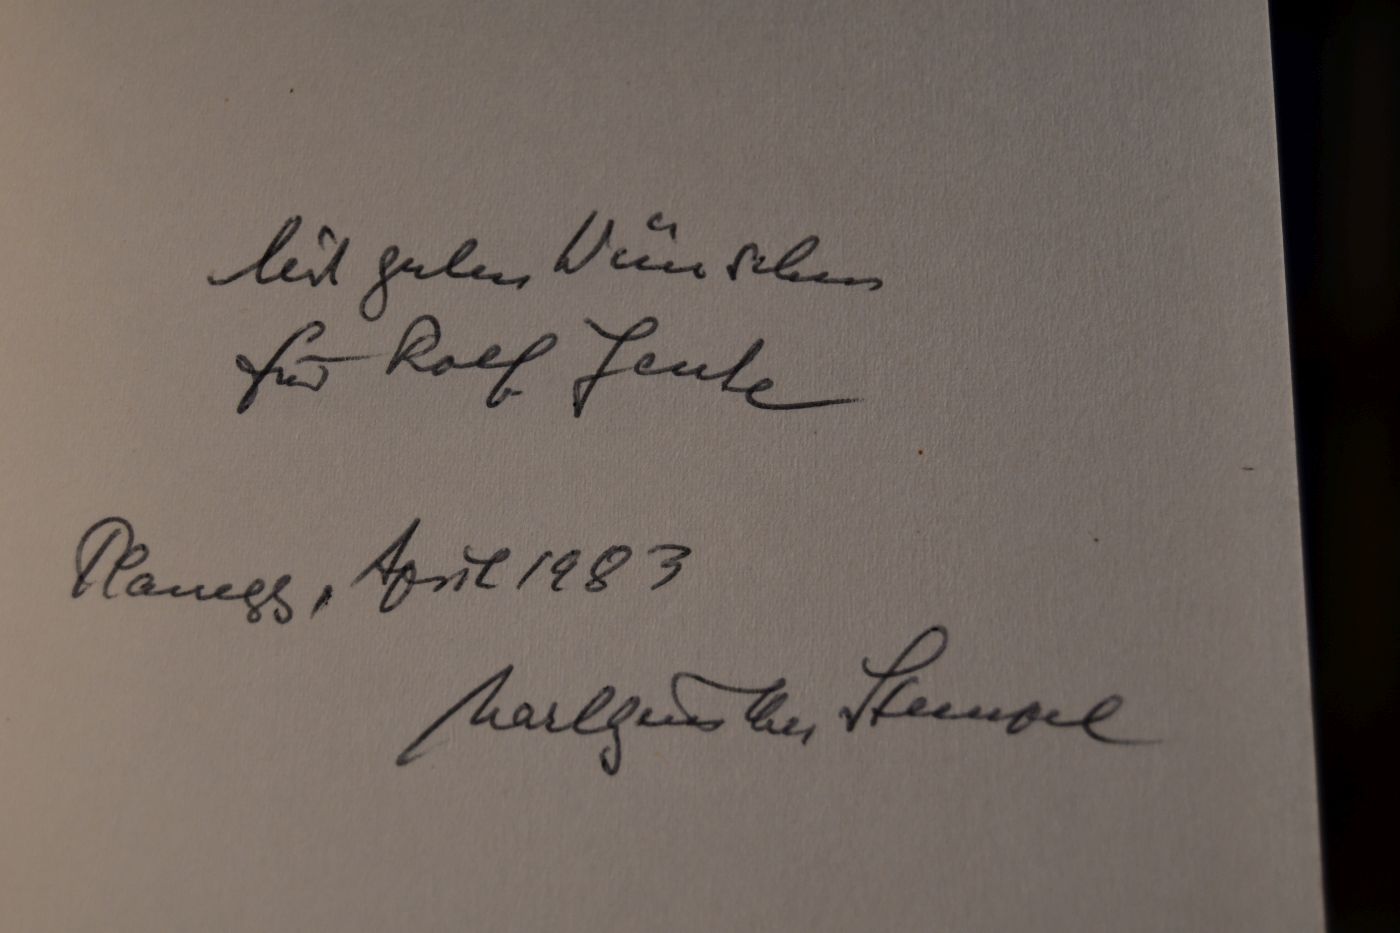 Mit guten Wünschen
für Rolf Jente
Planegg, April 1983
Karlgünther Stempel